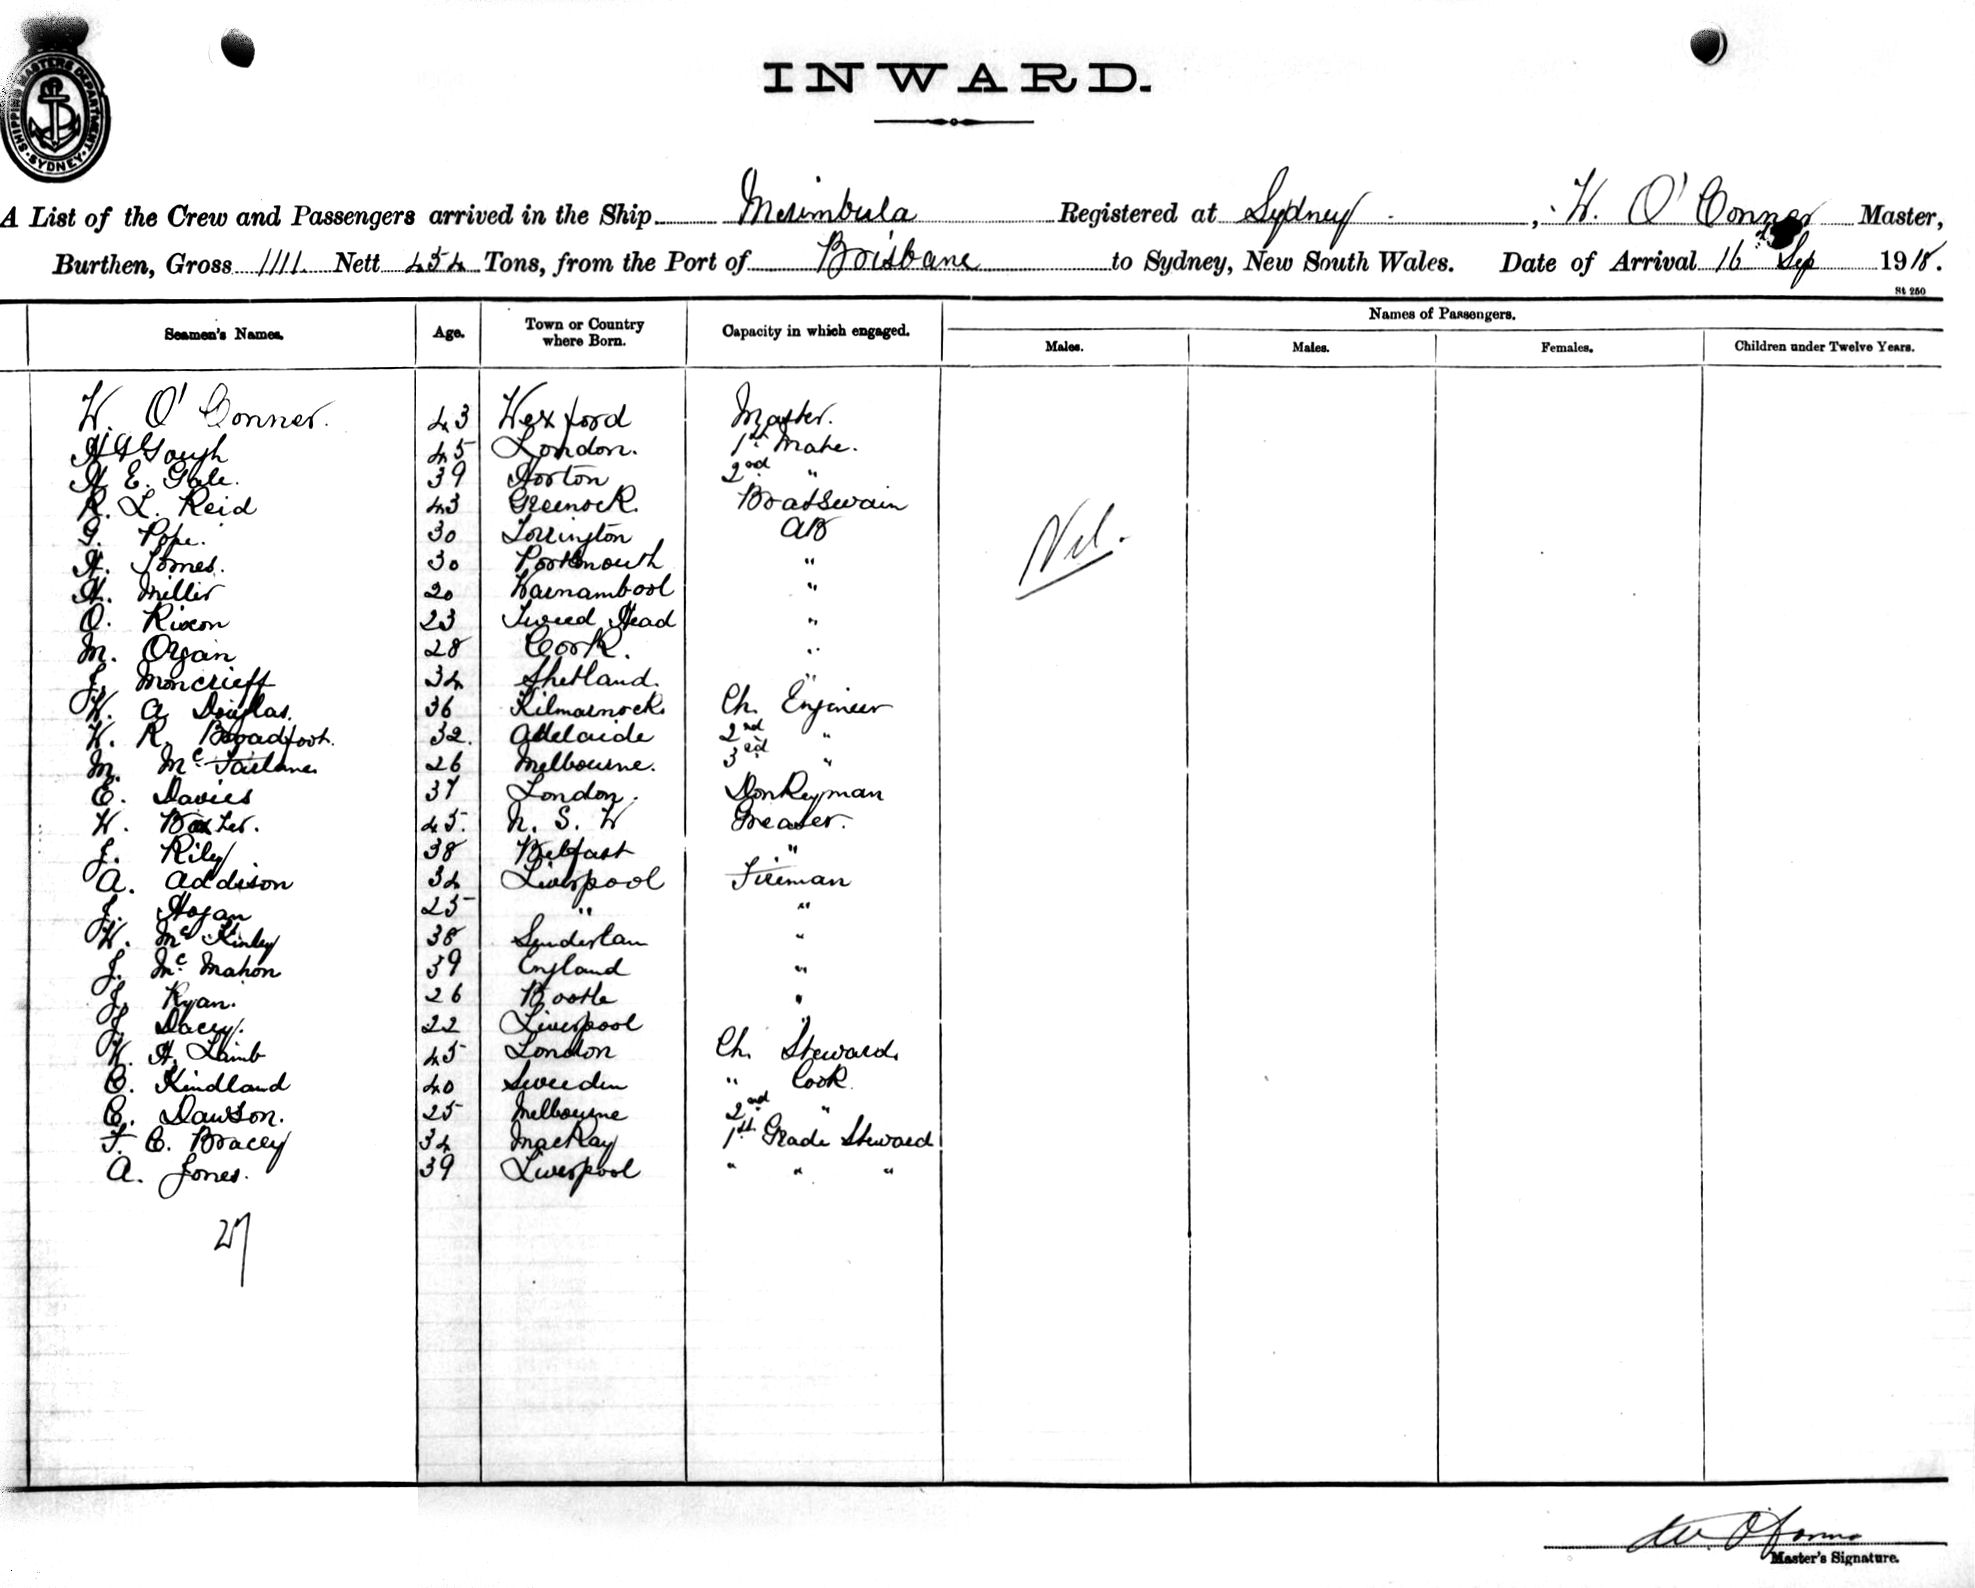 SHIPPING MASTERS DEPARTMENT
SYDNEY
INWARD.
A List of the Crew and Passengers arrived in the Ship Merimbula Registered at Sydney, W. O'Conner Master,
Burthen, Gross 1111 Nett 454 Tons, from the Port of Brisbane to Sydney, New South Wales. Date of Arrival 16 Sep 1918.
St 250
Seamen's Names. Age. Town or Country where Born. Capacity in which engaged. Names of Passengers.
Males. Males. Females. Children under Twelve Years.
W. O'Conner. 43 Wexford Master.
Gough 45 London. 1st Mate.
H. E. Gale. 39 Norton 2nd "
R. L. Reid 43 Greenock. Boatswain
G. Pope. 30 Torrington AB
H. Tomes. 30 Portsmouth "
H. Miller 20 Warnambool "
O. Rixon 23 Tweed Head "
M. Organ 28 Cork. "
J. Moncrieff 34 Shetland. "
W. A. Douglas. 36 Kilmarnock. Ch. Engineer
W. R. Broadfoot. 32. Adelaide 2nd "
M. McFarlane. 26 Melbourne. 3rd "
E. Davies 37 London. Donkeyman
W. Baxter. 45. N. S. W Greaser.
J. Rily 38 Belfast "
A. Addison 34 Liverpool Fireman
J. Hogan 25 " "
W. McKinley 38 Sunderlan "
J. McMahon 39 England "
J. Ryan. 26 Bootle "
J. Dacey. 22 Liverpool "
W. H. Lamb 45 London Ch. Steward.
C. Kindland 40 Sweeden " Cook.
C. Dawson. 25 Melbourne 2nd "
F. C. Bracey 34 MacKay 1st Grade Steward
A. Jones. 39 Liverpool " " "
Nil.
27
W. O'Conner
Master's Signature.